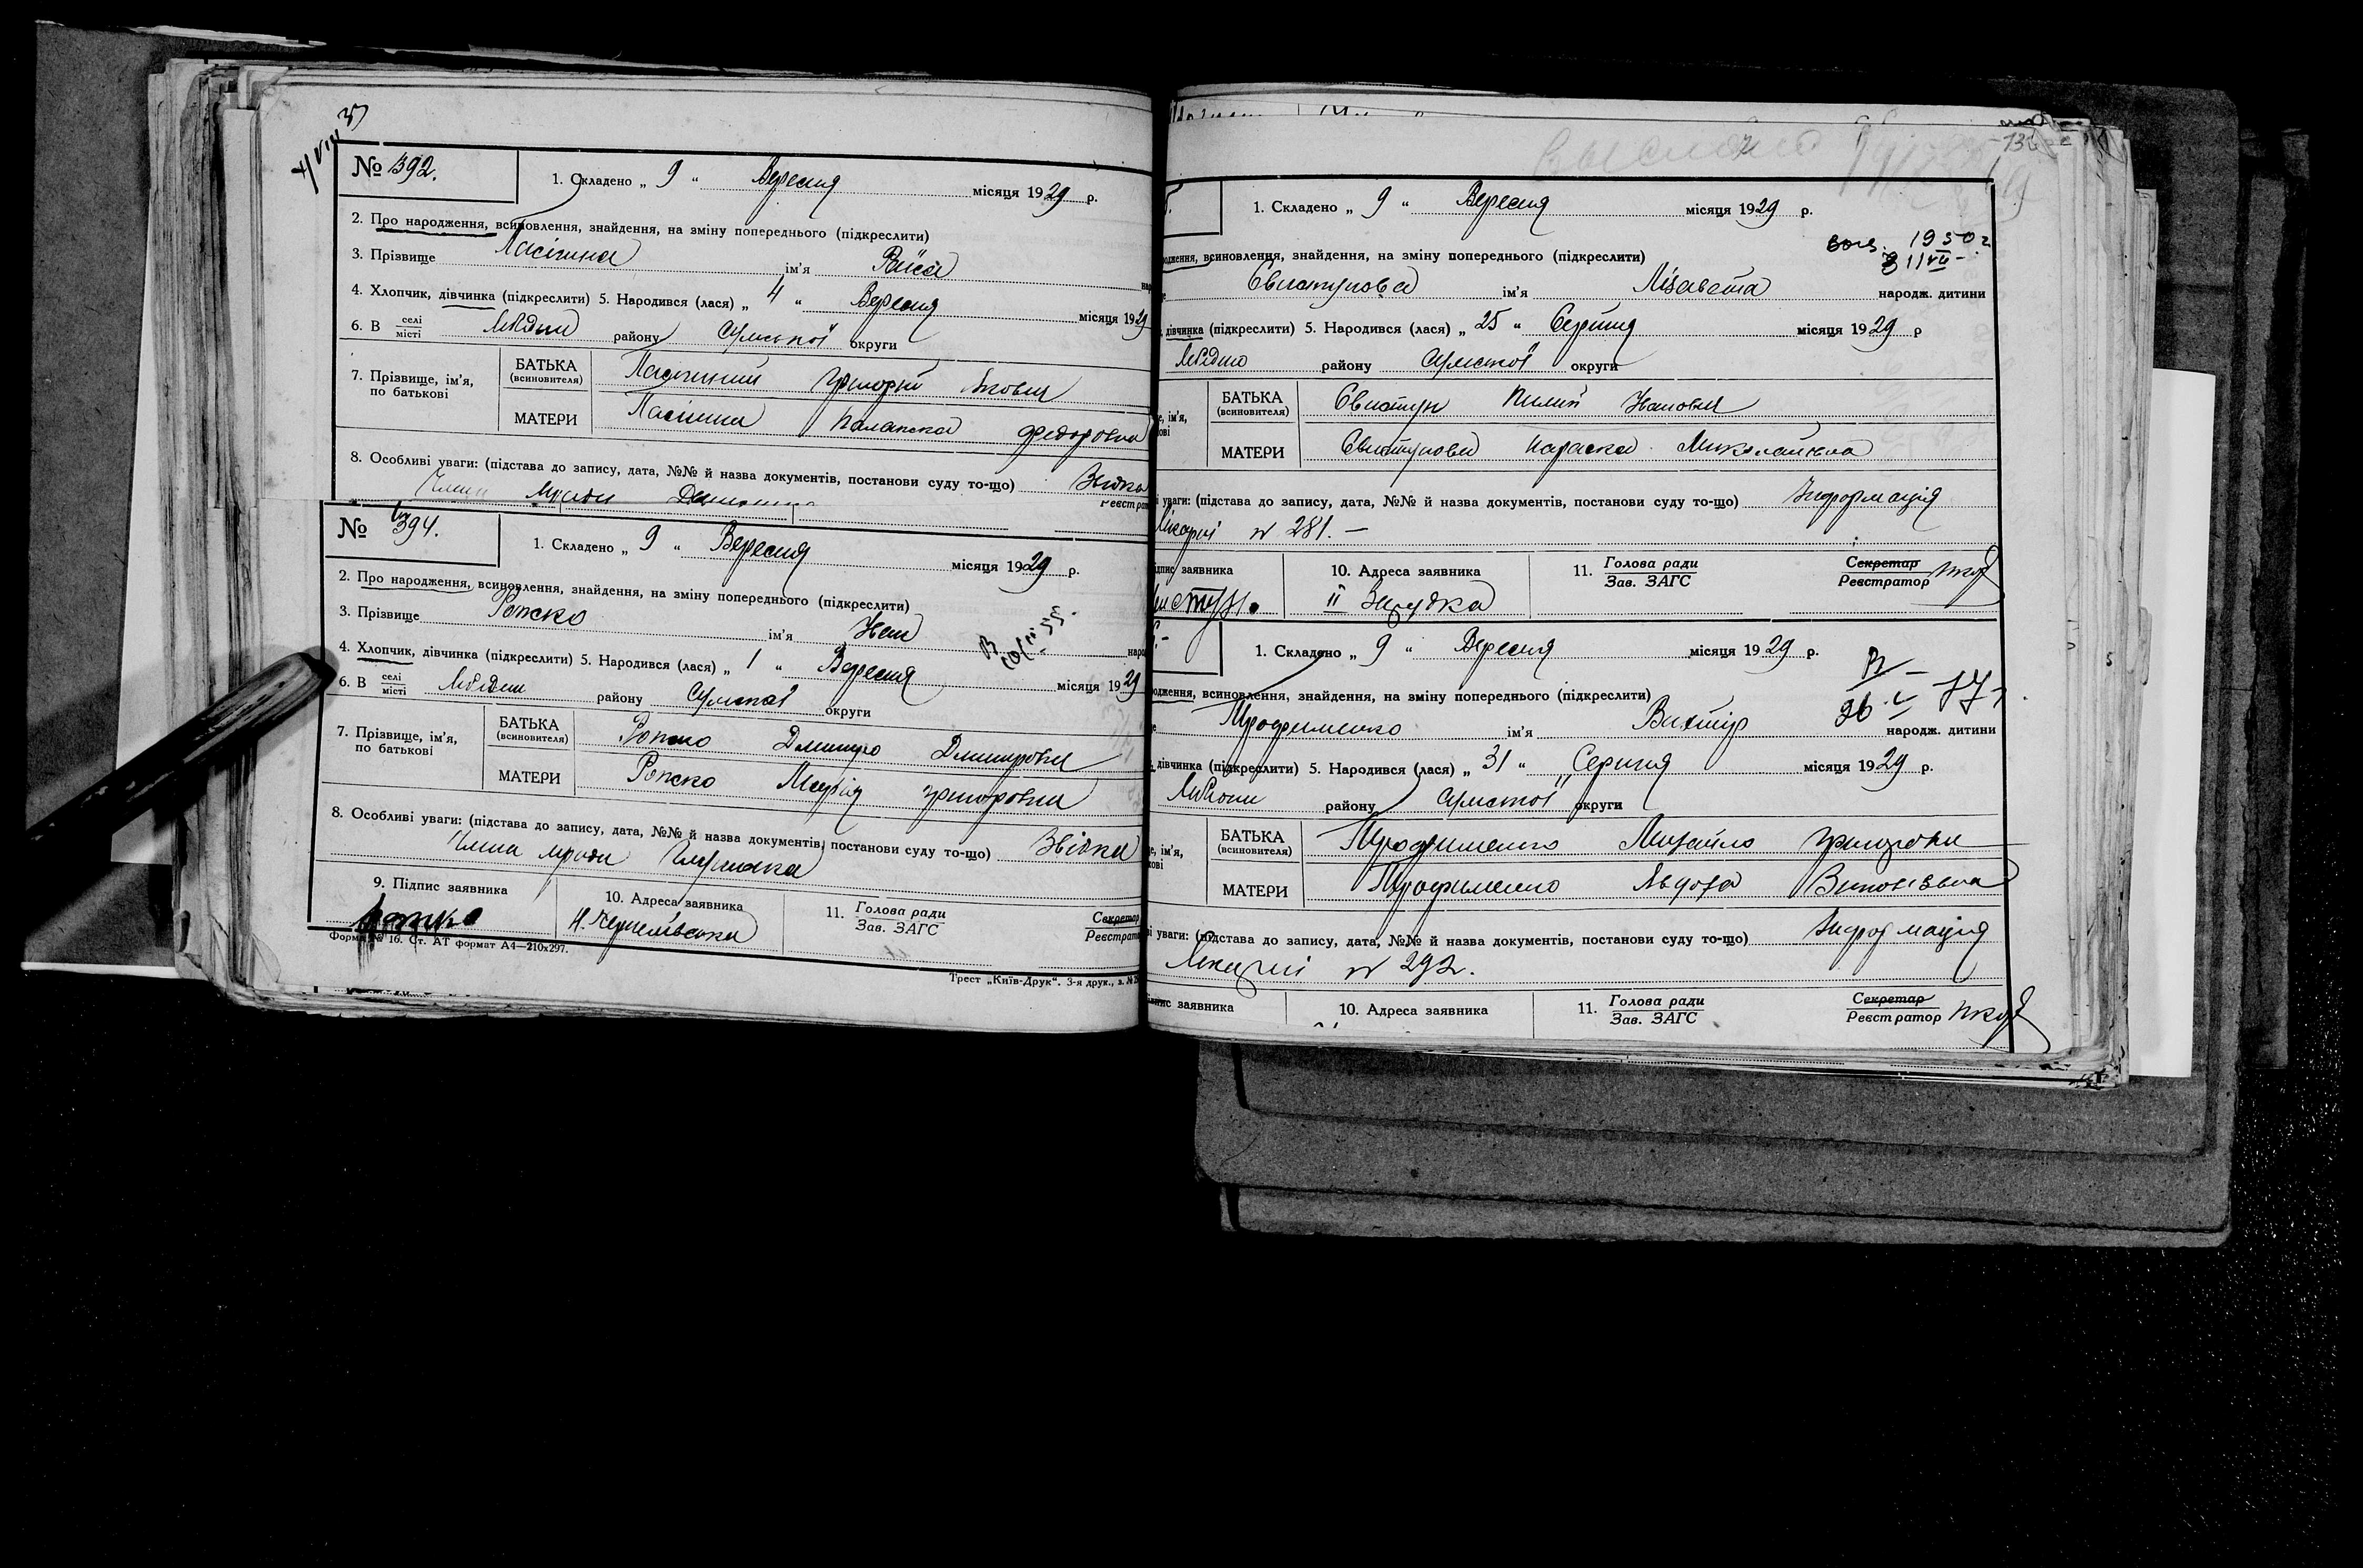 № 392.
1. Складено „ 9 “ Вересня місяця 1929 р.
2. Про народження, всиновлення, знайдення, на зміну попереднього (підкреслити)
3. Прізвище Пасічна ім'я Раїса
4. Хлопчик, дівчинка (підкреслити) 5. Народився (лася) „ 4 “ Вересня місяця 1929
6. В селі місті Лебедин району Сумської округи
7. Прізвище, ім'я, по батькові
БАТЬКА (всиновителя) Пасічний Григорій Якович
МАТЕРИ Пасічна Палажка Федоровна
8. Особливі уваги: (підстава до запису, дата, №№ й назва документів, постанови суду то-що)
№ 394.
1. Складено „ 9 “ Вересня місяця 1929 р.
2. Про народження, всиновлення, знайдення, на зміну попереднього (підкреслити)
3. Прізвище ім'я Іван
4. Хлопчик, дівчинка (підкреслити) 5. Народився (лася) „ 1 “ Вересня місяця 1929
6. В селі місті Лебедин району Сумської округи
7. Прізвище, ім'я, по батькові
БАТЬКА (всиновителя) Дмитро Дмитрович
МАТЕРИ Марія Григоровна
8. Особливі уваги: (підстава до запису, дата, №№ й назва документів, постанови суду то-що) Звістка
9. Підпис заявника
10. Адреса заявника
11. Голова ради Зав. ЗАГС
Секретар
Форма № 16. Ст. АТ формат А4—210х297.
Трест „Київ-Друк“. 3-я друк., з. №
1. Складено „ 9 “ Вересня місяця 1929 р.
1950 г
всиновлення, знайдення, на зміну попереднього (підкреслити)
Свистунова ім'я Лізавета народж. дитини
дівчинка (підкреслити) 5. Народився (лася) „ 25 “ Серпня місяця 1929 р
Лебедин району Сумської округи
БАТЬКА (всиновителя) Свистун Пилип Іванович
МАТЕРИ Свистунова Параска Миколаївна
уваги: (підстава до запису, дата, №№ й назва документів, постанови суду то-що) Інформація
Лікарні № 281. —
заявника
10. Адреса заявника
II Зарудка
11. Голова ради Зав. ЗАГС
Секретар Реєстратор
1. Складено „ 9 “ Вересня місяця 1929 р.
всиновлення, знайдення, на зміну попереднього (підкреслити)
Трофименко ім'я Віктір народж. дитини
дівчинка (підкреслити) 5. Народився (лася) „ 31 “ Серпня місяця 1929 р.
району Сумської округи
БАТЬКА (всиновителя) Трофименко Михайло Григорович
МАТЕРИ Трофименко
уваги: (підстава до запису, дата, №№ й назва документів, постанови суду то-що) Інформація
Лікарні № 292.
заявника
10. Адреса заявника
11. Голова ради Зав. ЗАГС
Секретар Реєстратор